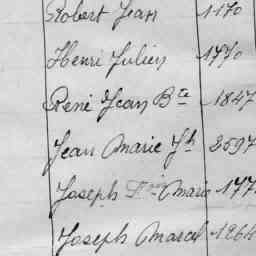 Robert Jean 1170
Henri Julien 1770
René Jean Bte 1847
Jean Marie Jh 3597
Joseph Marie 177
Joseph Marcel 1264